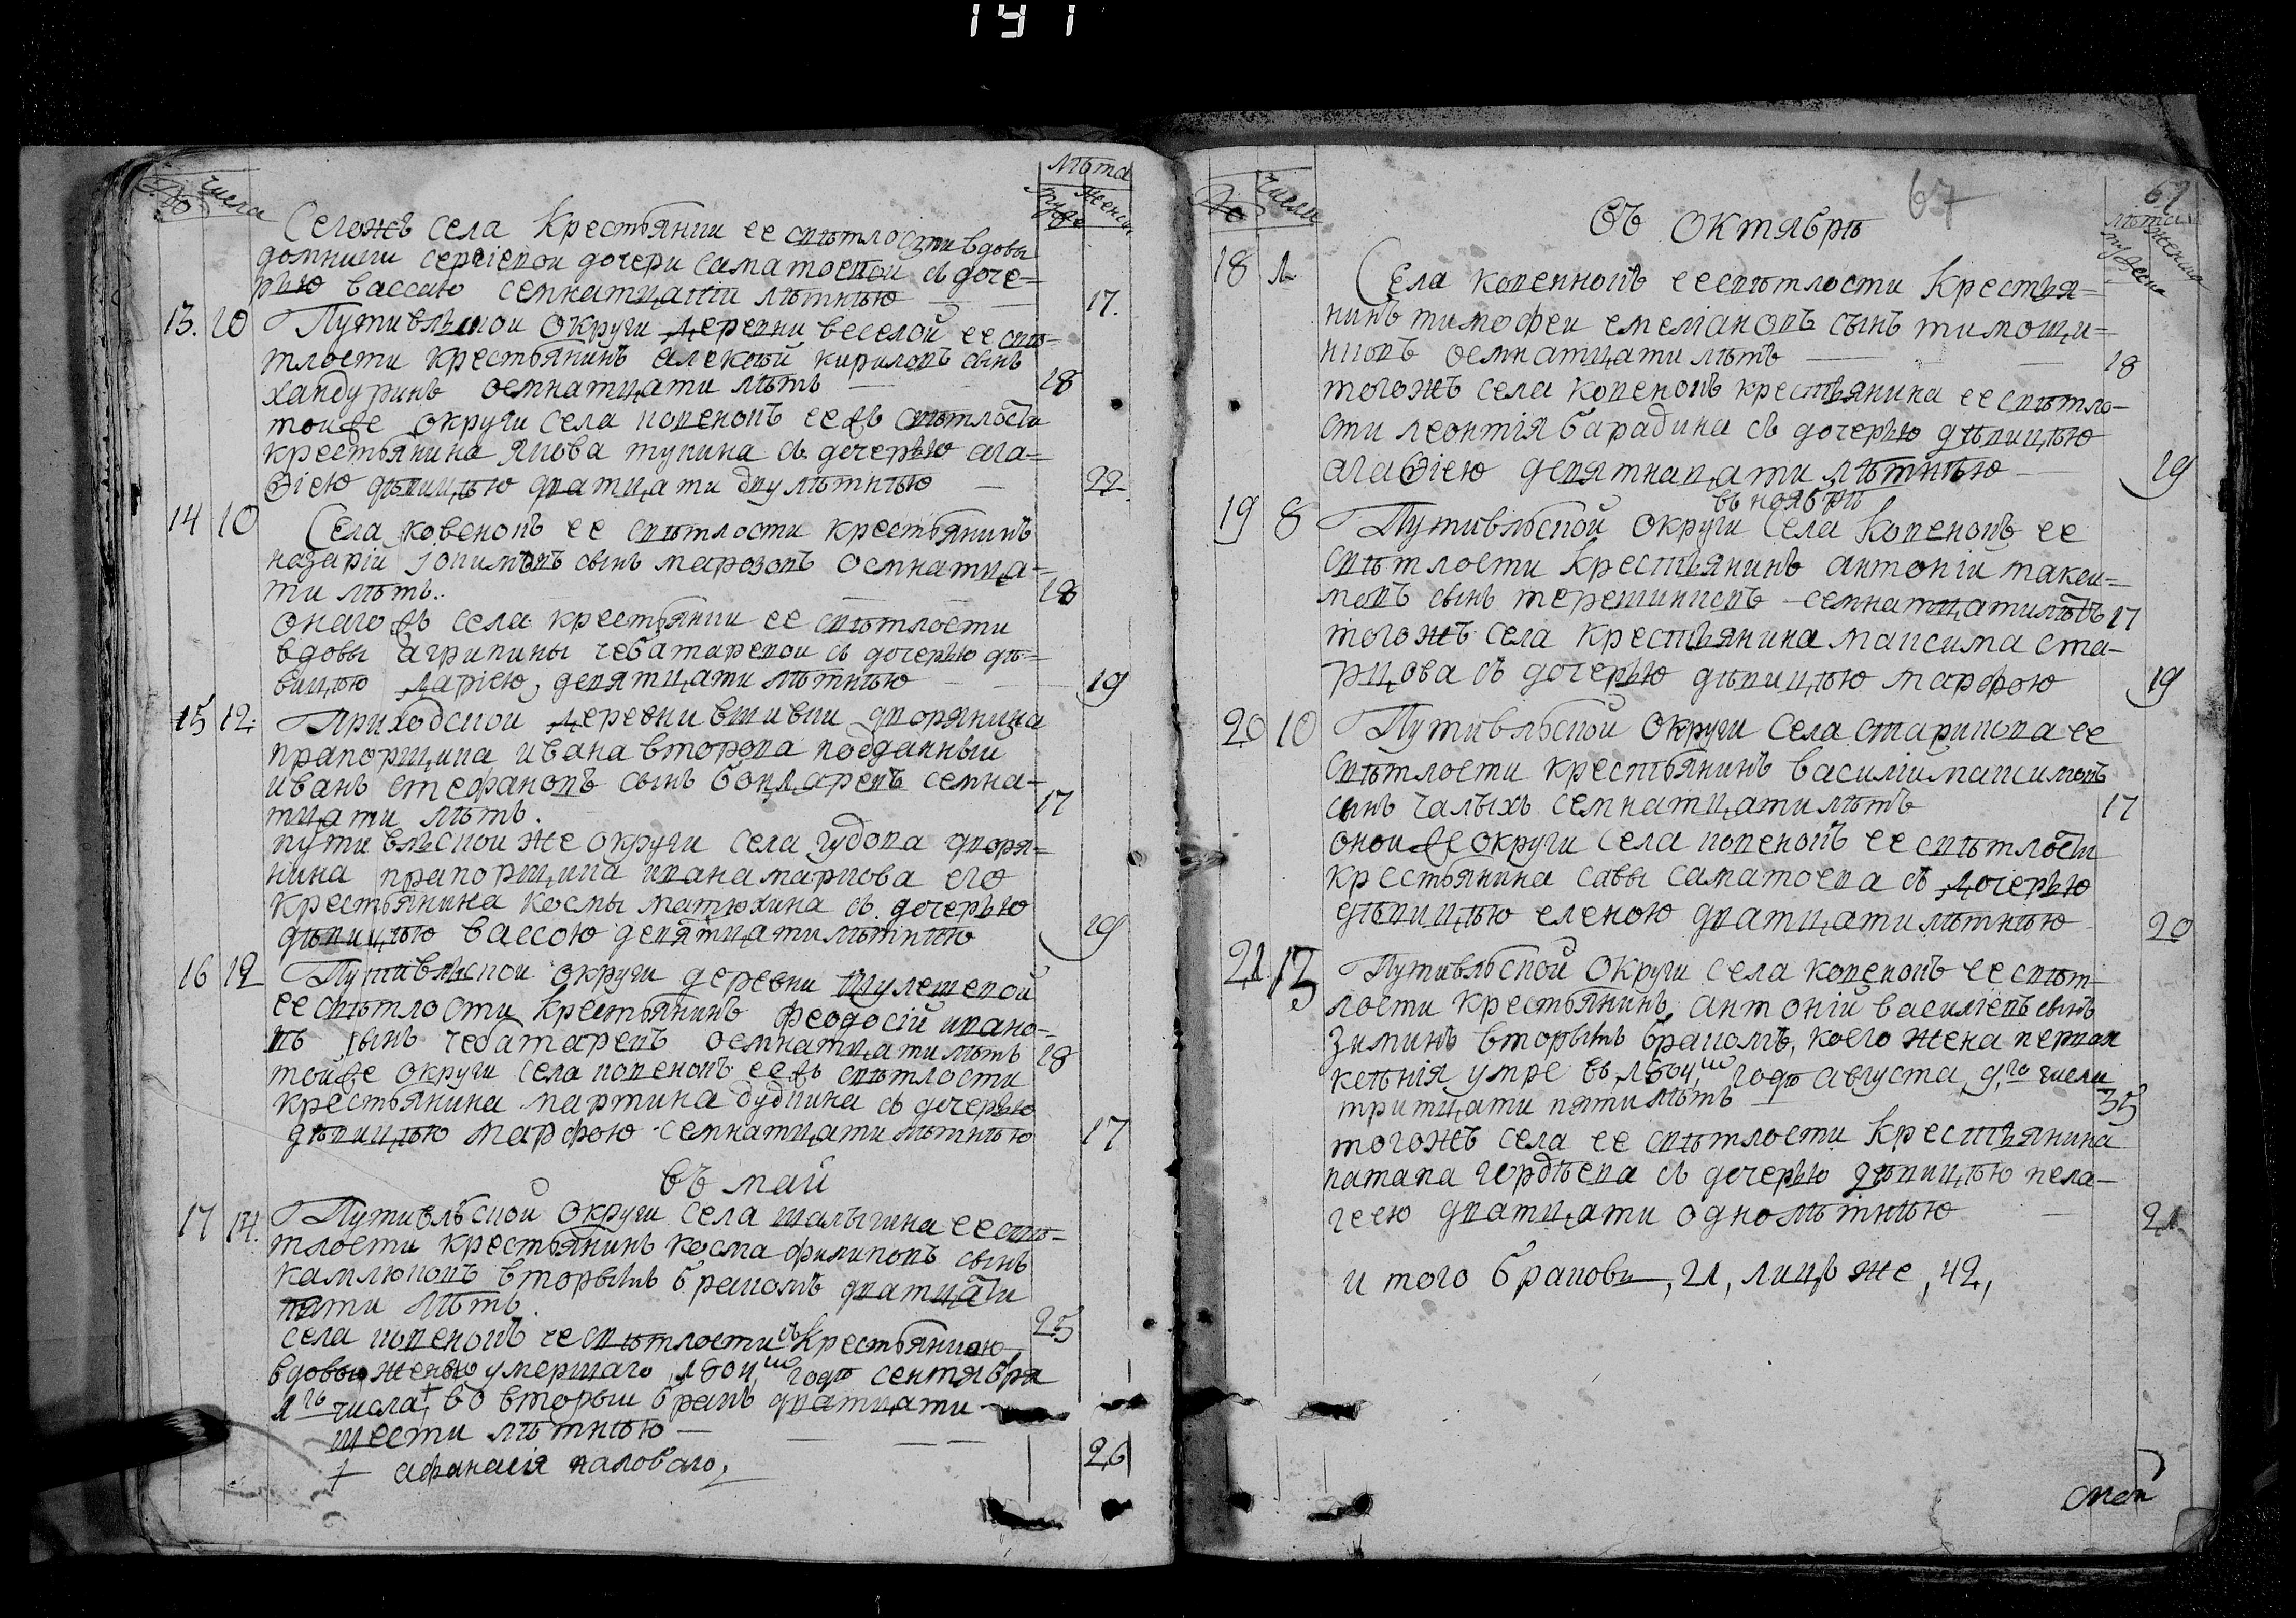 191
№ числа
лѣта
муже женска
Сегожъ села крестьянки ее свѣтлости вдовы
домникии сергіевой дочери саматоевой съ доче=
рью вассою семнатцати лѣтнею 17.
13. 20 Путивльской округи деревни веселой ее свѣ=
тлости крестьянинъ алексѣй кириловъ сынъ
хандуринъ осмнатцати лѣтъ 18
тойже округи села ковенокъ еежъ свѣтлости
крестьянина якова тупина съ дочерью ага=
ѳіею дѣвицею дватцати двулѣтнею 22
14 10 Села ковенокъ ее свѣтлости крестьянинъ
назарій іовимовъ сынъ марозовъ осмнатца=
ти лѣтъ. 18
онагожъ села крестьянки ее свѣтлости
вдовы агрипины чебатаревой съ дочерью дѣ=
вицею дарією, девятцати лѣтнею 19
15 12. Приходской деревни вшивки дворянина
прапорщика ивана второва подданный
иванъ стефановъ сынъ бондаревъ семна-
тцати лѣтъ. 17
путивльской же округи села гудова дворя=
нина прапорщика ивана маркова его
крестьянина космы матюхина съ дочерью
дѣвицею вассою девятцатилѣтнею 19
16 12 Путивльской округи деревни шулешевой
ее свѣтлости крестьянинъ феодосій ивано-
въ сынъ чебатаревъ осмнатцати лѣтъ 18
тойже округи села ковенокъ ееже свѣтлости
крестьянина мартина дудкина съ дочерью
дѣвицею марфою семнатцати лѣтнею 17
въ май
17 14. Путивльской округи села шалыгина ее свѣ=
тлости крестьянинъ косма филиповъ сынъ
камлюковъ вторымъ бракомъ дватцати
пяти лѣтъ. 25
села ковенокъ ее свѣтлости съ крестьянкою
вдовою женою умершаго 1804, го года сентября
1 го числа + во вторый бракъ дватцати
шести лѣтнею 26
+ афанасія каловаго,
67
67
№ числа
лѣта
мужеска женска
Въ октябрѣ
18 1. Села ковенокъ ее свѣтлости крестья=
нинъ тимофеи емелановъ сынъ тимощи=
нковъ осмнатцати лѣтъ 18
тогожъ села ковенокъ крестьянина ее свѣтло-
сти леонтія барадина съ дочерью дѣвицею
агаѳіею девятнацати лѣтнею 19
въ ноябрѣ
19 8 Путивльской округи села ковенокъ ее
свѣтлости крестьянинъ антоній макси=
мовъ сынъ терешинковъ семнатцатилѣтъ 17
тогожъ села крестьянина максима ста-
рцова съ дочерью дѣвицею марфою 19
20 10 Путивльской округи села старикова ее
свѣтлости крестьянинъ василій максимовъ
сынъ чалыхъ семнатцати лѣтъ 17
онойже округи села ковенокъ ее свѣтлости
крестьянина савы саматоева съ дочерью
дѣвицею еленою дватцати лѣтнею 20
21. 13 Путивльской округи села ковенокъ ее свѣт-
лости крестьянинъ, антоній василіевъ сынъ
зиминъ вторымъ бракомъ, коего жена первая
ксѣнія умре въ 1804, го года августа, 9, го числа
тритцати пяти лѣтъ 35
тогожъ села ее свѣтлости крестьянина
патапа гордѣева съ дочерью дѣвицею пела-
геею дватцати однолѣтнею 21
итого браковъ, 21, лицъ же, 42,